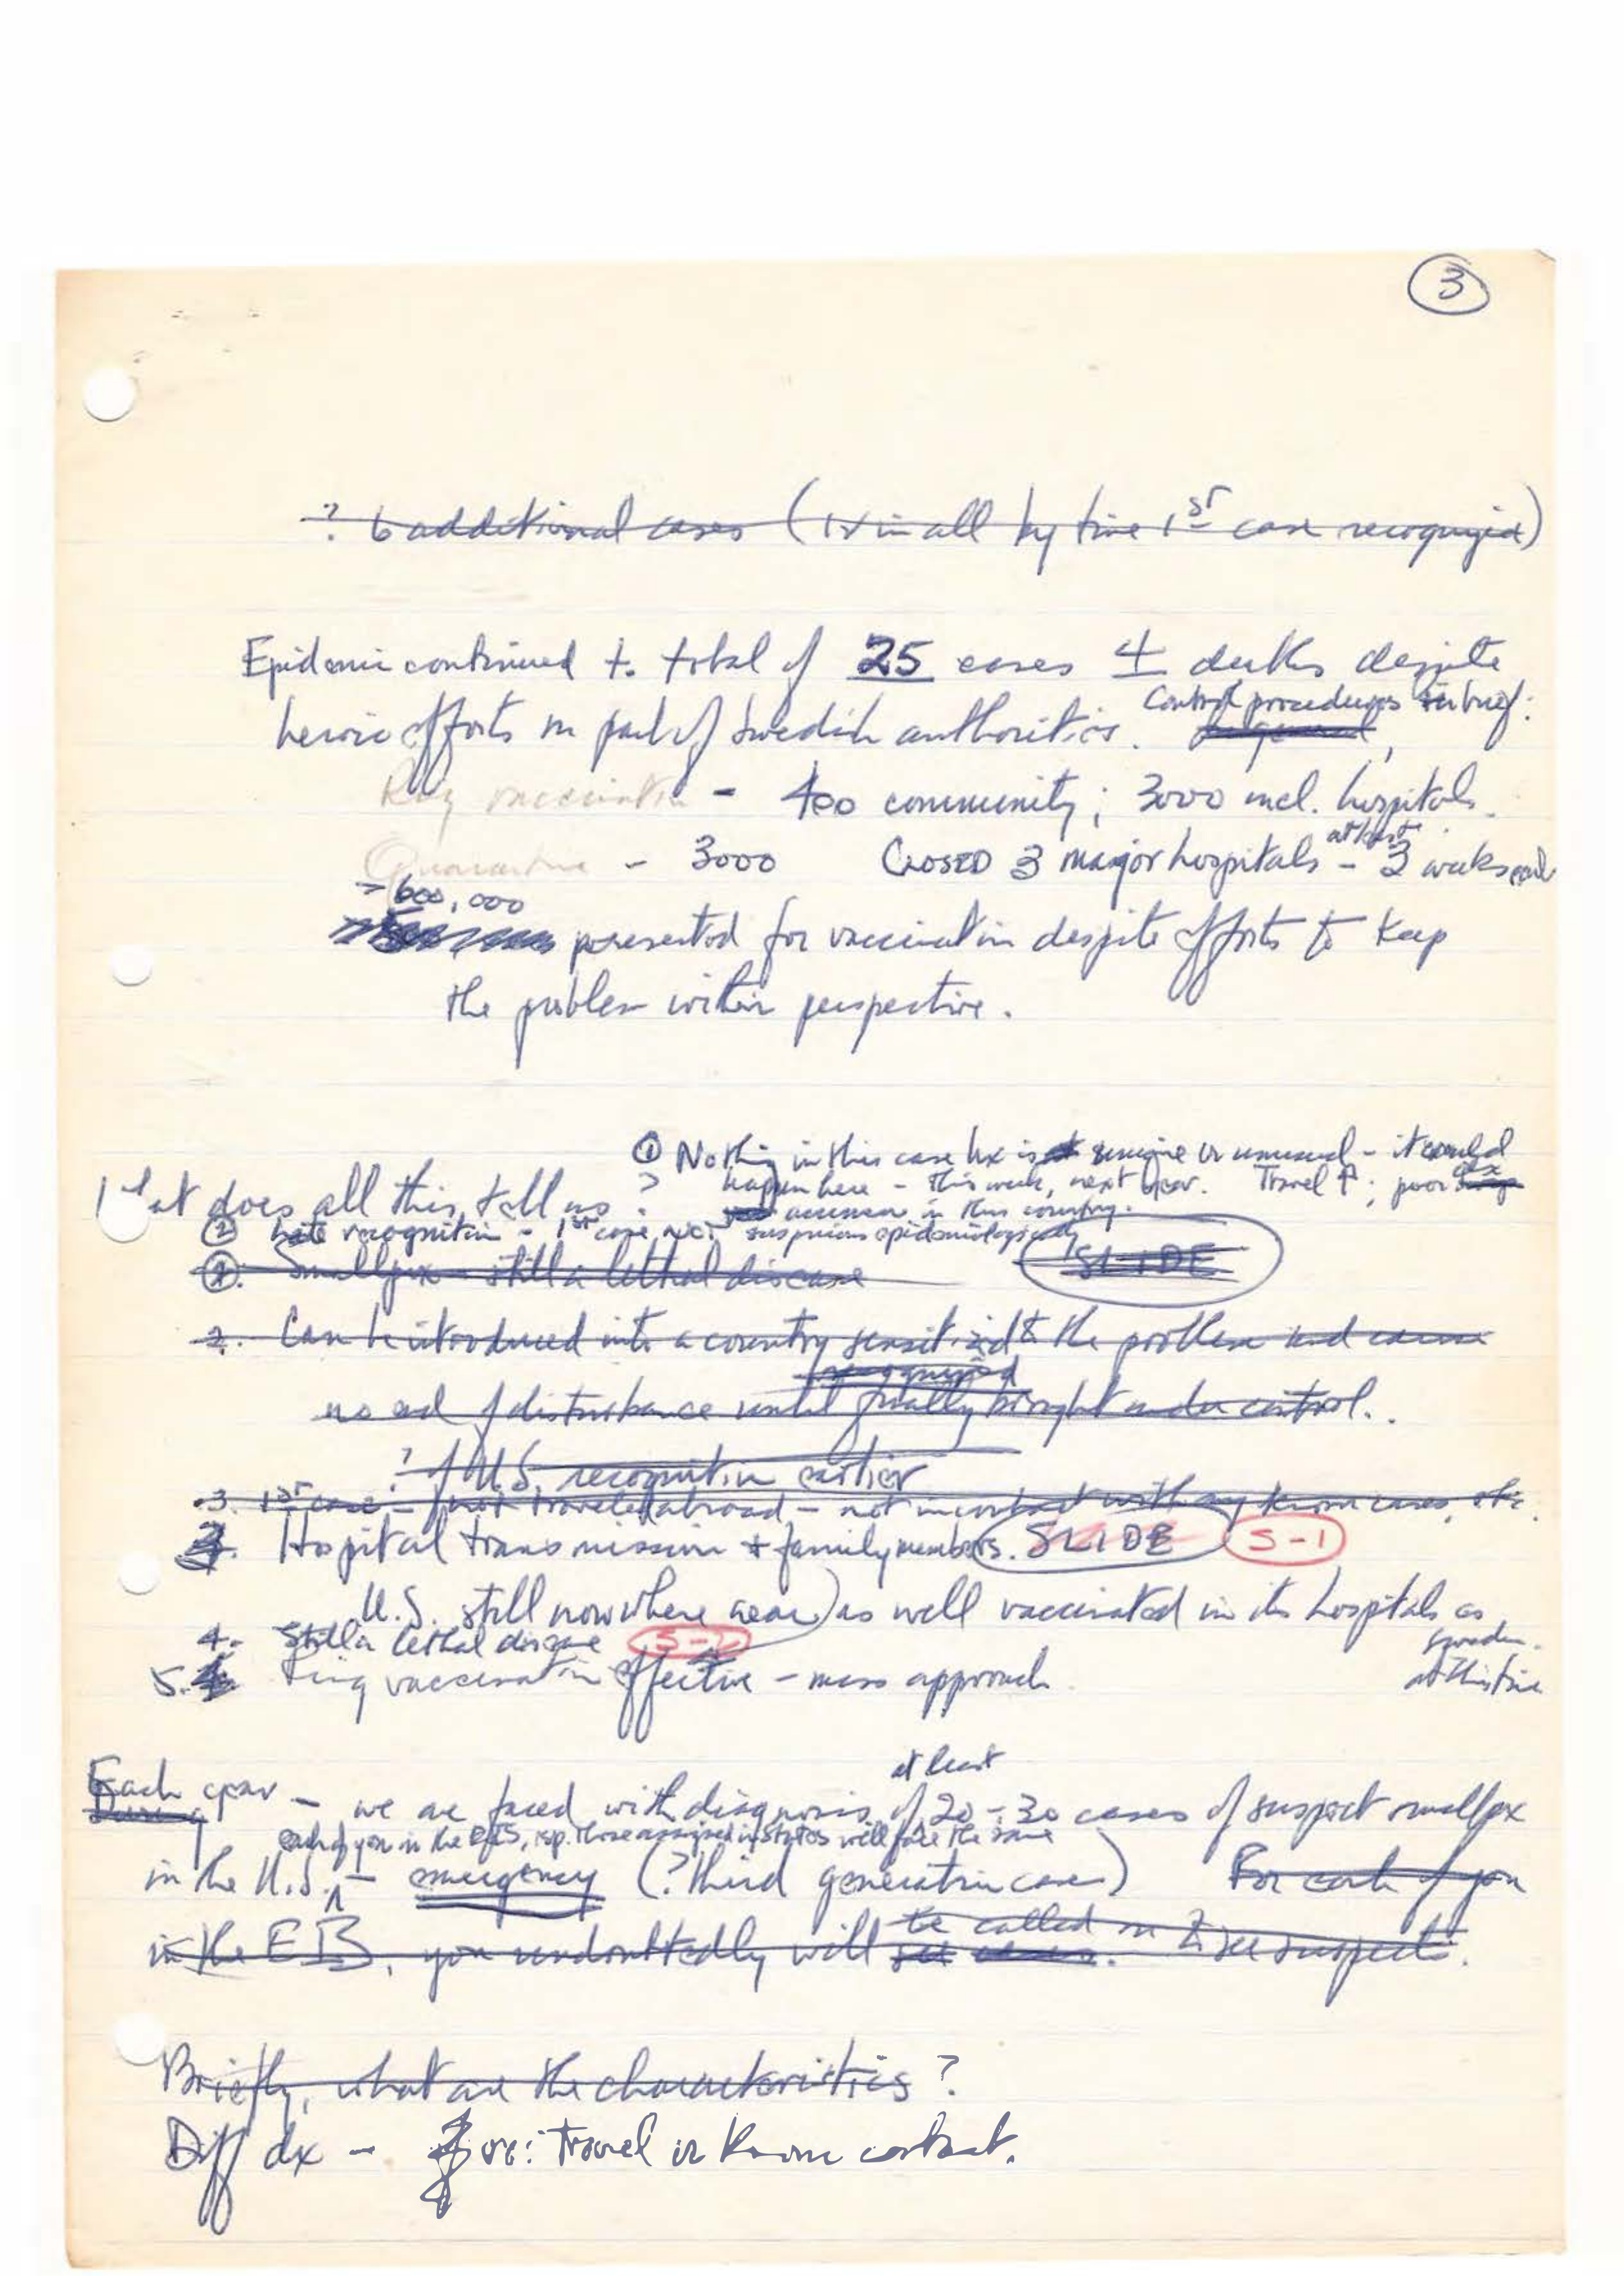 3
? 6 additional cases (in all by time 1st case recognized)
Epidemic continued to total of 25 cases 4 deaths despite
heroic efforts on part of Swedish authorities. Control procedures in brief:
Ring vaccination - 400 community; 3000 incl. hospitals.
Quarantine - 3000 CLOSED 3 major hospitals - at least 3 weeks each
> 600,000
presented for vaccination despite efforts to keep
the problem within perspective.
① Nothing in this case hx is unique or unusual - it could
happen here - this week, next year. Travel ↑; poor
in this country.
What does all this tell us?
② Late recognition - 1st case not suspicious epidemiologically
①. Smallpox - still a lethal disease SLIDE
2. Can be introduced into a country sensitized to the problem and cause
recognized
no end of disturbance until finally brought under control.
? if U.S. recognition earlier
3. 1st case - not traveled abroad - not in contact with any known cases, etc.
3. Hospital transmission + family members. SLIDE S-1
U.S. still nowhere near as well vaccinated in its hospitals as
Sweden
at this time
4. Still a lethal disease S-2
5. Ring vaccination effective - mass approach
at least
Each year - we are faced with diagnosis of 20-30 cases of suspect smallpox
During
each of you in the EIS, esp. those assigned in states will face the same
in the U.S. - emergency (? third generation case) For each of you
in the EIS, you undoubtedly will be called on to see suspects.
see cases.
Briefly, what are the characteristics?
Diff dx - or: travel or known contact.